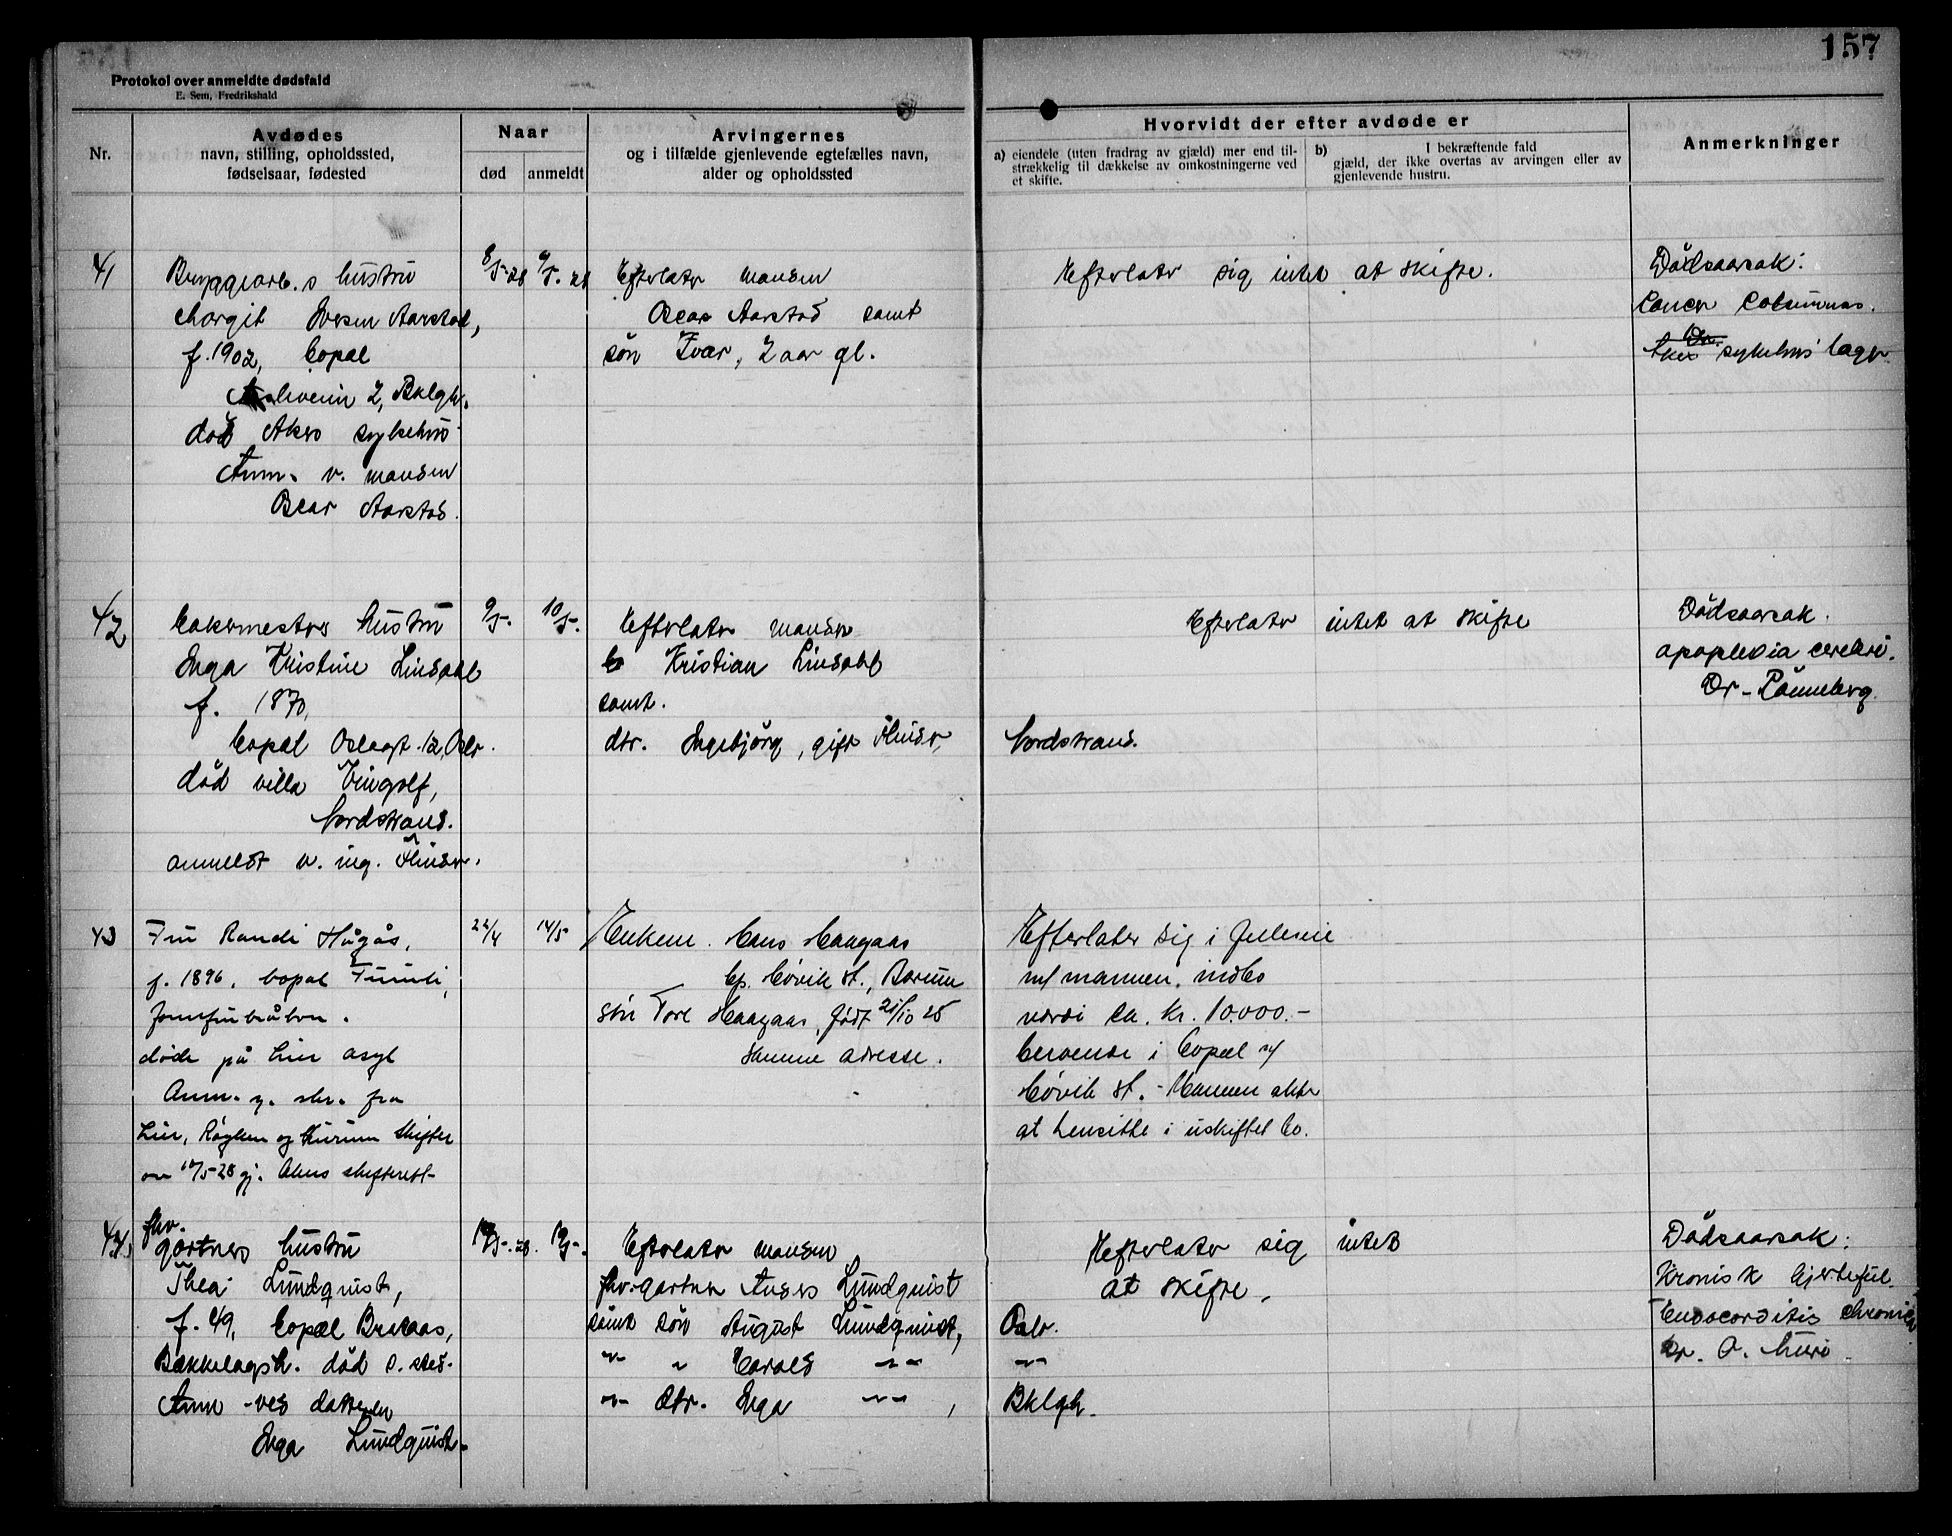 157
Protokol over anmeldte dødsfald
E. Sem, Fredrikshald
Nr.
Avdødes
navn, stilling, opholdssted,
fødselsaar, fødested
Naar
død
anmeldt
Arvingernes
og i tilfælde gjenlevende egtefælles navn,
alder og opholdssted
Hvorvidt der efter avdøde er
a) eiendele (uten fradrag av gjæld) mer end til-
strækkelig til dækkelse av omkostningerne ved
et skifte.
b) I bekræftende fald
gjæld, der ikke overtas av arvingen eller av
gjenlevende hustru.
Anmerkninger
41
Bryggearb.s hustru
Margit Iversen Aarstad,
f. 1902, bopæl
2, Bklgh.
død Akers sykehus
Anm. v. manden
Oscar Aarstad.
8/5-28
9/5-28
Efterlater manden
Oscar Aarstad samt
søn Ivar, 2 aar gl.
Efterlater sig intet at skifte.
Dødsaarsak:
Cancer
Dr.
sykehus læge
42
hustru
Inga Kristine Lindahl
f. 1870,
bopæl Oslogt. 12, Oslo.
død villa Vingolf,
Nordstrand.
anmeldt v. ing.
9/5-
10/5-
Efterlater manden
Kristian Lindahl
samt.
dtr. Ingebjørg, gift
Nordstrand.
Efterlater intet at skifte
Dødsaarsak.
apoplexia cerebri.
Dr. Rønneberg.
43
Fru Randi Hågås,
f. 1896, bopæl
døde på Lier asyl
Anm. g. skr. fra
Lier, Røyken og Hurum Skifter
av 12/5-28 gj. Akers skifterett-
22/4
14/5
Enkem. Hans Haagaas
bp. Høvik st., Bærum
søn Tore Haagaas, født 21/10 25
Samme adresse.
Efterlater sig i fælleseie
m/ mannen, indbo
verdi ca. kr. 10.000.-
beroende i bopæl v/
Høvik st. - Mannen akter
at hensitte i uskiftet bo.
44
fhv.
gartners hustru
Thea Lundquist,
f. 49, bopæl Brekaas,
Bækkelagsh. død s. sted.
Anm - ved datteren
Inga Lundquist.
Efterlater manden
fhv. gartner Anders Lundquist
samt søn August Lundquist, Oslo.
" " Harald " "
" dtr. Inga " , Bklgh.
Efterlater sig intet
at skifte.
Dødsaarsak:
Kronisk hjertefeil
Endocarditis chronica
Dr. O.